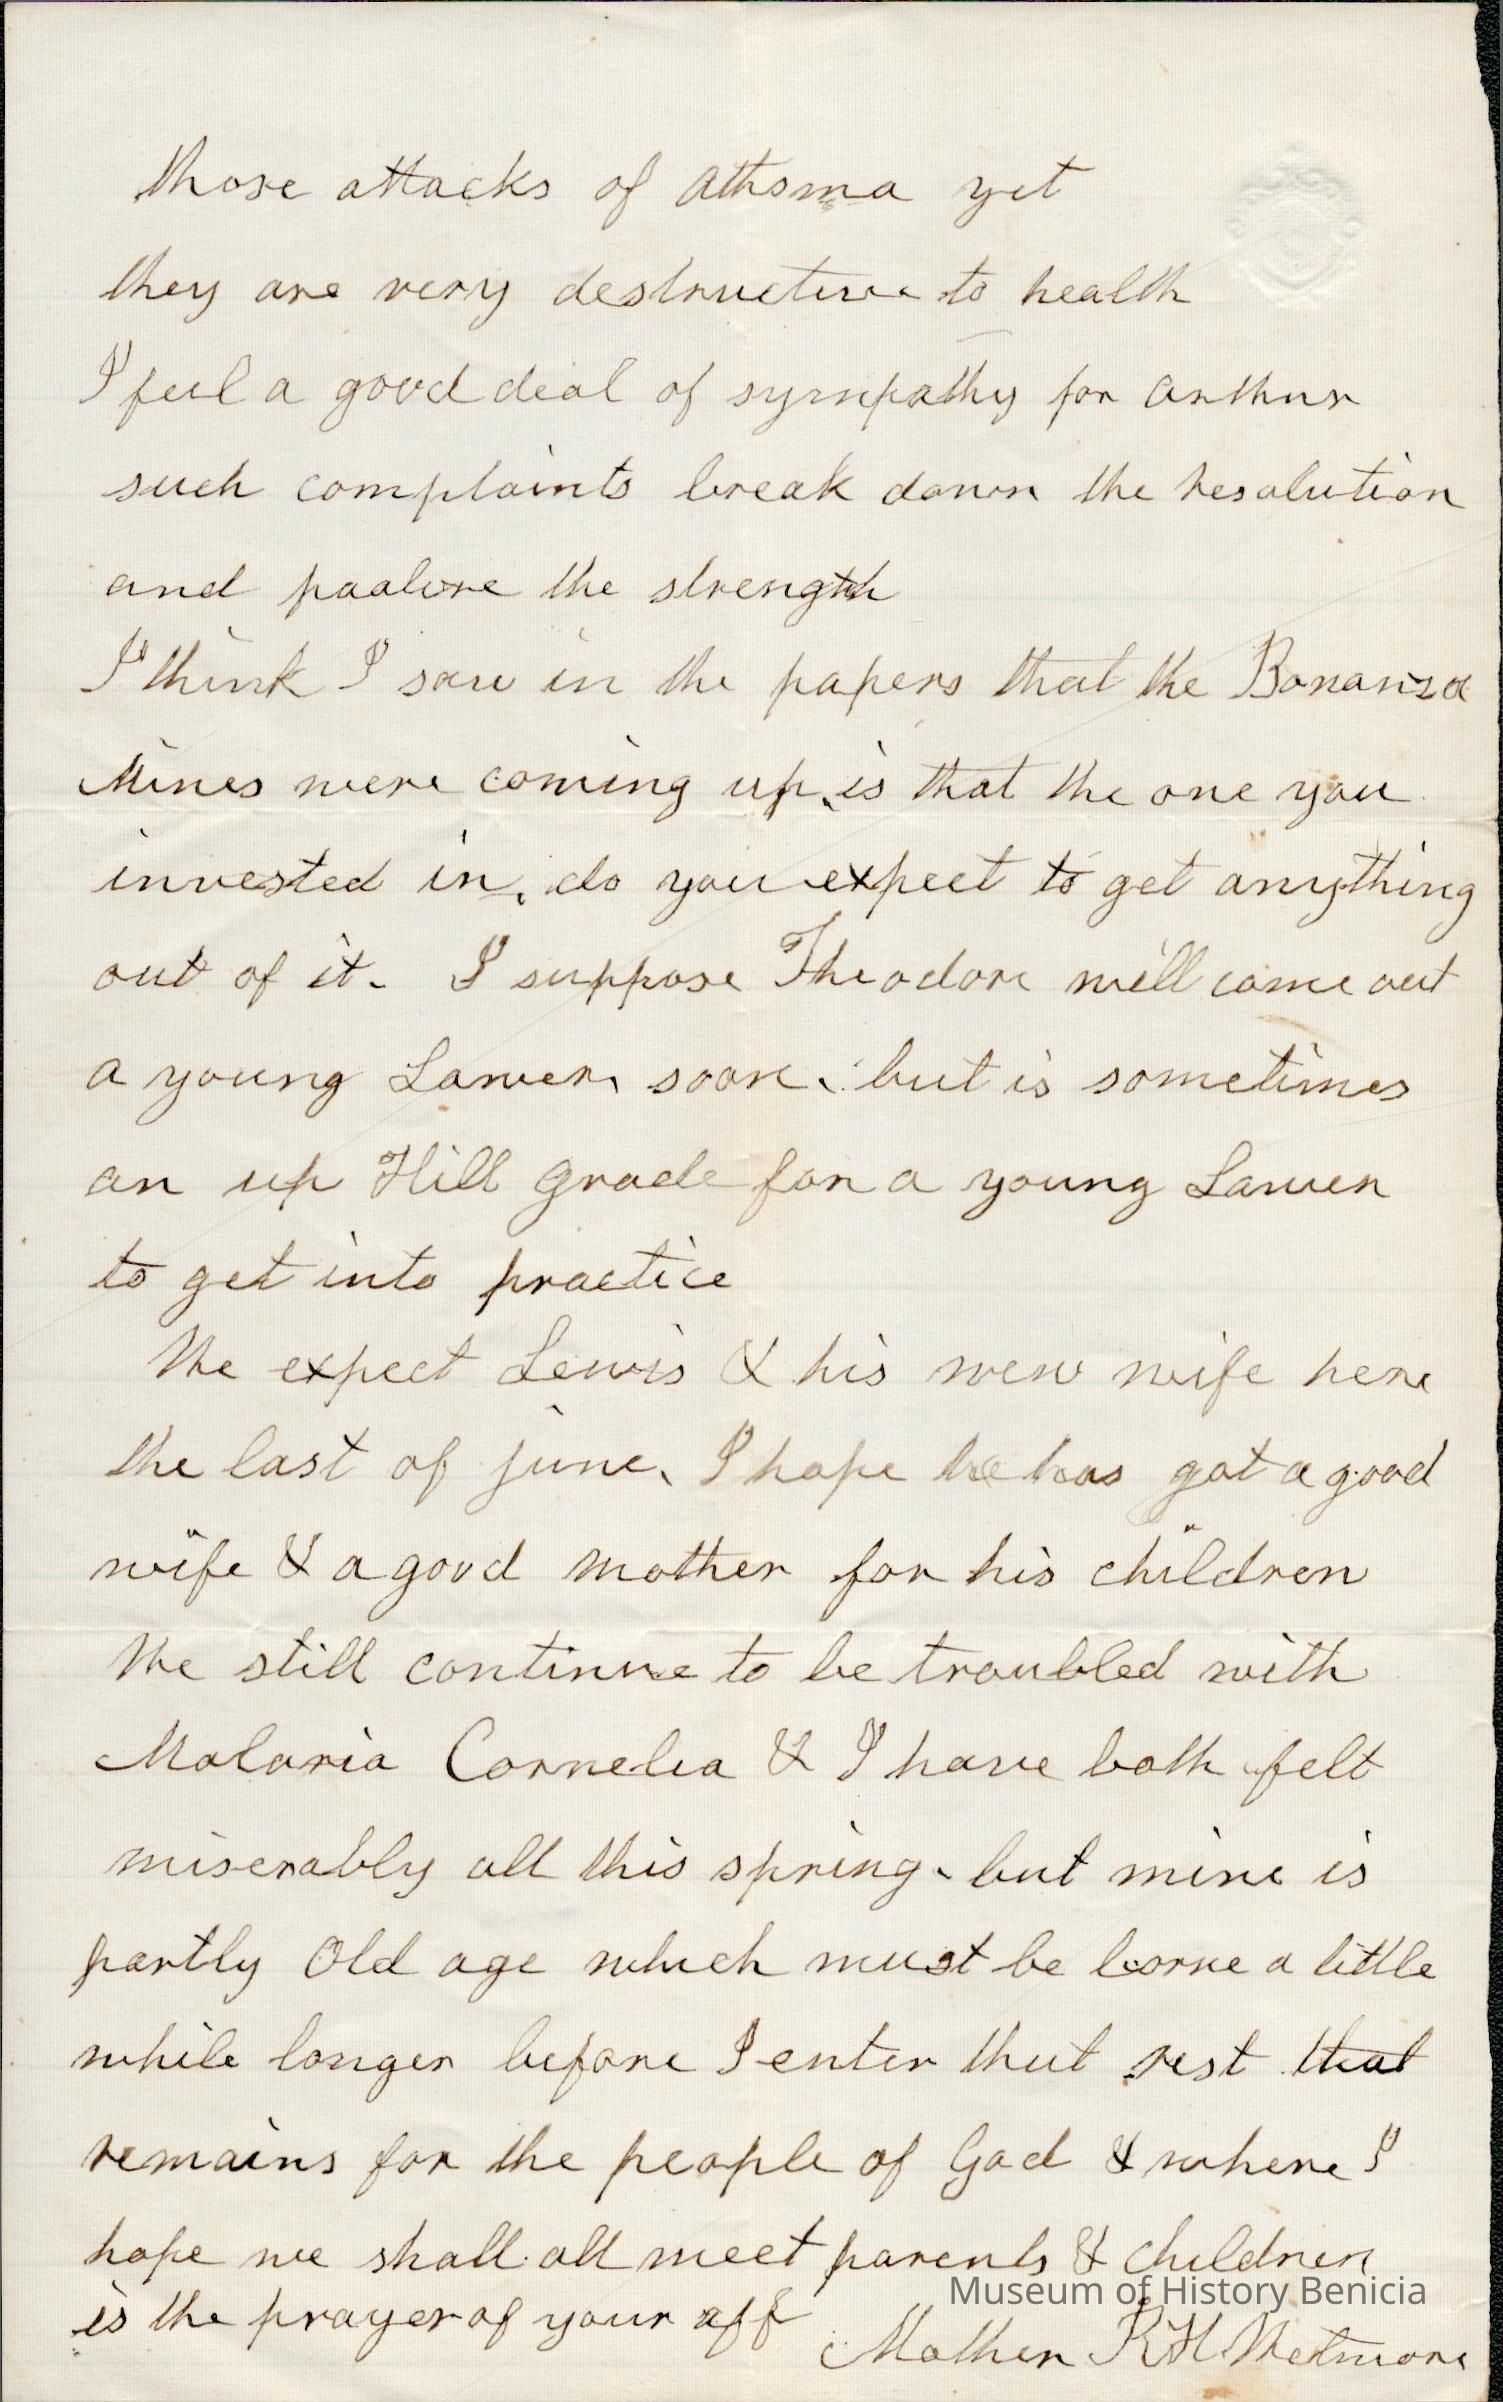 those attacks of athsma yet
they are very destructive to health
I feel a good deal of sympathy for arthur
such complaints break down the resolution
and the strength
I think I saw in the papers that the Bonanza
Mines were coming up, is that the one you
invested in, do you expect to get anything
out of it. I suppose Theodore will come out
a young Lawer, soon, but is sometimes
an up Hill grade for a young Lawer
to get into practice
We expect Lewis & his new wife here
the last of june, I hope he has got a good
wife & a good mother for his children
We still continue to be troubled with
Malaria Cornelia & I have both felt
miserably all this spring, but mine is
partly Old age which must be borne a little
while longer before I enter that rest that
remains for the people of God & where I
hope we shall all meet parents & children
Museum of History Benicia
is the prayer of your aff
Mother R H Wetmore